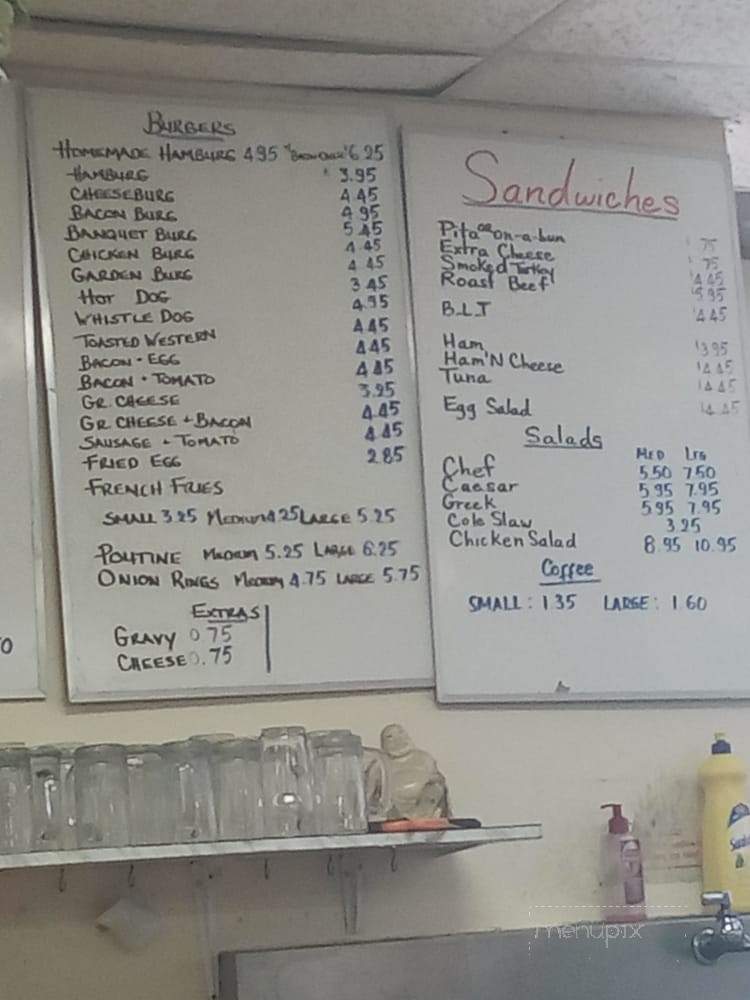 BURGERS
HOMEMADE HAMBURG 4.95 6.25
HAMBURG $3.95
CHEESEBURG 4.45
BACON BURG 4.95
BANQUET BURG 5.45
CHICKEN BURG 4.45
GARDEN BURG 4.45
HOT DOG 3.45
WHISTLE DOG 4.95
TOASTED WESTERN 4.45
BACON + EGG 4.45
BACON + TOMATO 4.45
GR. CHEESE 3.95
GR CHEESE + BACON 4.45
SAUSAGE + TOMATO 4.45
FRIED EGG 2.85
FRENCH FRIES
SMALL 3.25 MEDIUM 4.25 LARGE 5.25
POUTINE MEDIUM 5.25 LARGE 6.25
ONION RINGS MEDIUM 4.75 LARGE 5.75
EXTRAS
GRAVY 0.75
CHEESE 0.75
Sandwiches
Pita or on-a-bun .75
Extra Cheese .75
Smoked Turkey $4.45
Roast Beef $5.95
B.L.T $4.45
Ham $3.95
Ham'N Cheese $4.45
Tuna $4.45
Egg Salad $4.45
Salads
MED LRG
Chef 5.50 7.50
Caesar 5.95 7.95
Greek 5.95 7.95
Cole Slaw 3.25
Chicken Salad 8.95 10.95
Coffee
SMALL: 1.35 LARGE: 1.60
menupix